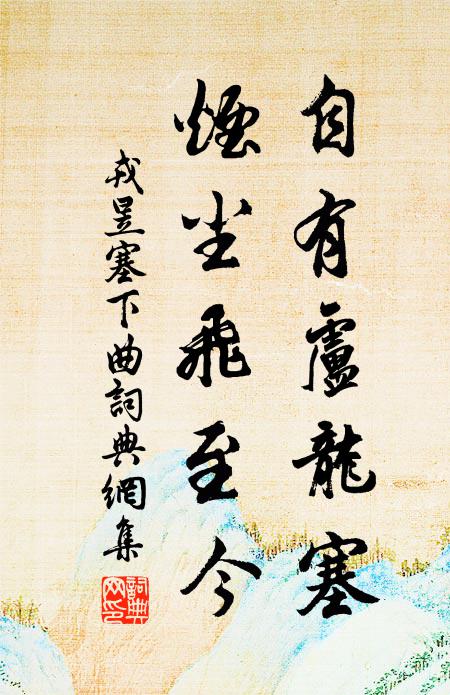 自有盧龍塞
煙塵飛至今
戎昱塞下曲詞典網集
詞典網印